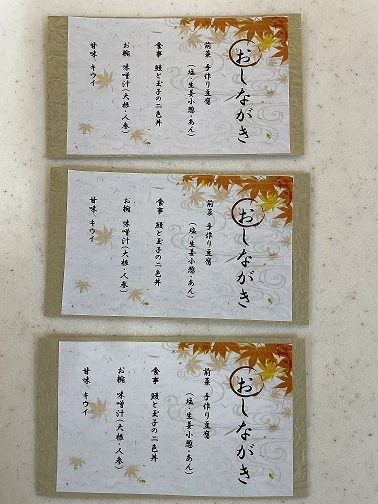 おしながき
前菜 手作り豆腐
(塩・生姜小葱・あん)
食事 鰻と玉子の二色丼
お椀 味噌汁(大根・人参)
甘味 キウイ
おしながき
前菜 手作り豆腐
(塩・生姜小葱・あん)
食事 鰻と玉子の二色丼
お椀 味噌汁(大根・人参)
甘味 キウイ
おしながき
前菜 手作り豆腐
(塩・生姜小葱・あん)
食事 鰻と玉子の二色丼
お椀 味噌汁(大根・人参)
甘味 キウイ